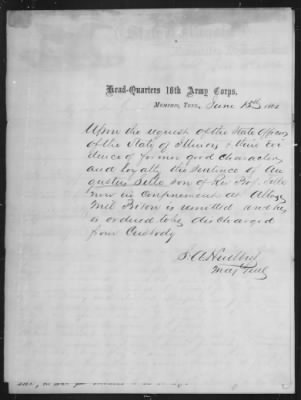 Head-Quarters 16th Army Corps,
Memphis, Tenn., June 15th 186
Upon the request of the State Officers
of the State of Illinois & their Evi
dence of former good Character
and loyalty the Sentence of Au
gustus son of Rev
now in Confinement at Alton
Mil Prison is remitted and he
is ordered to be discharged
from Custody
S. A. Hurlbut
Maj Genl